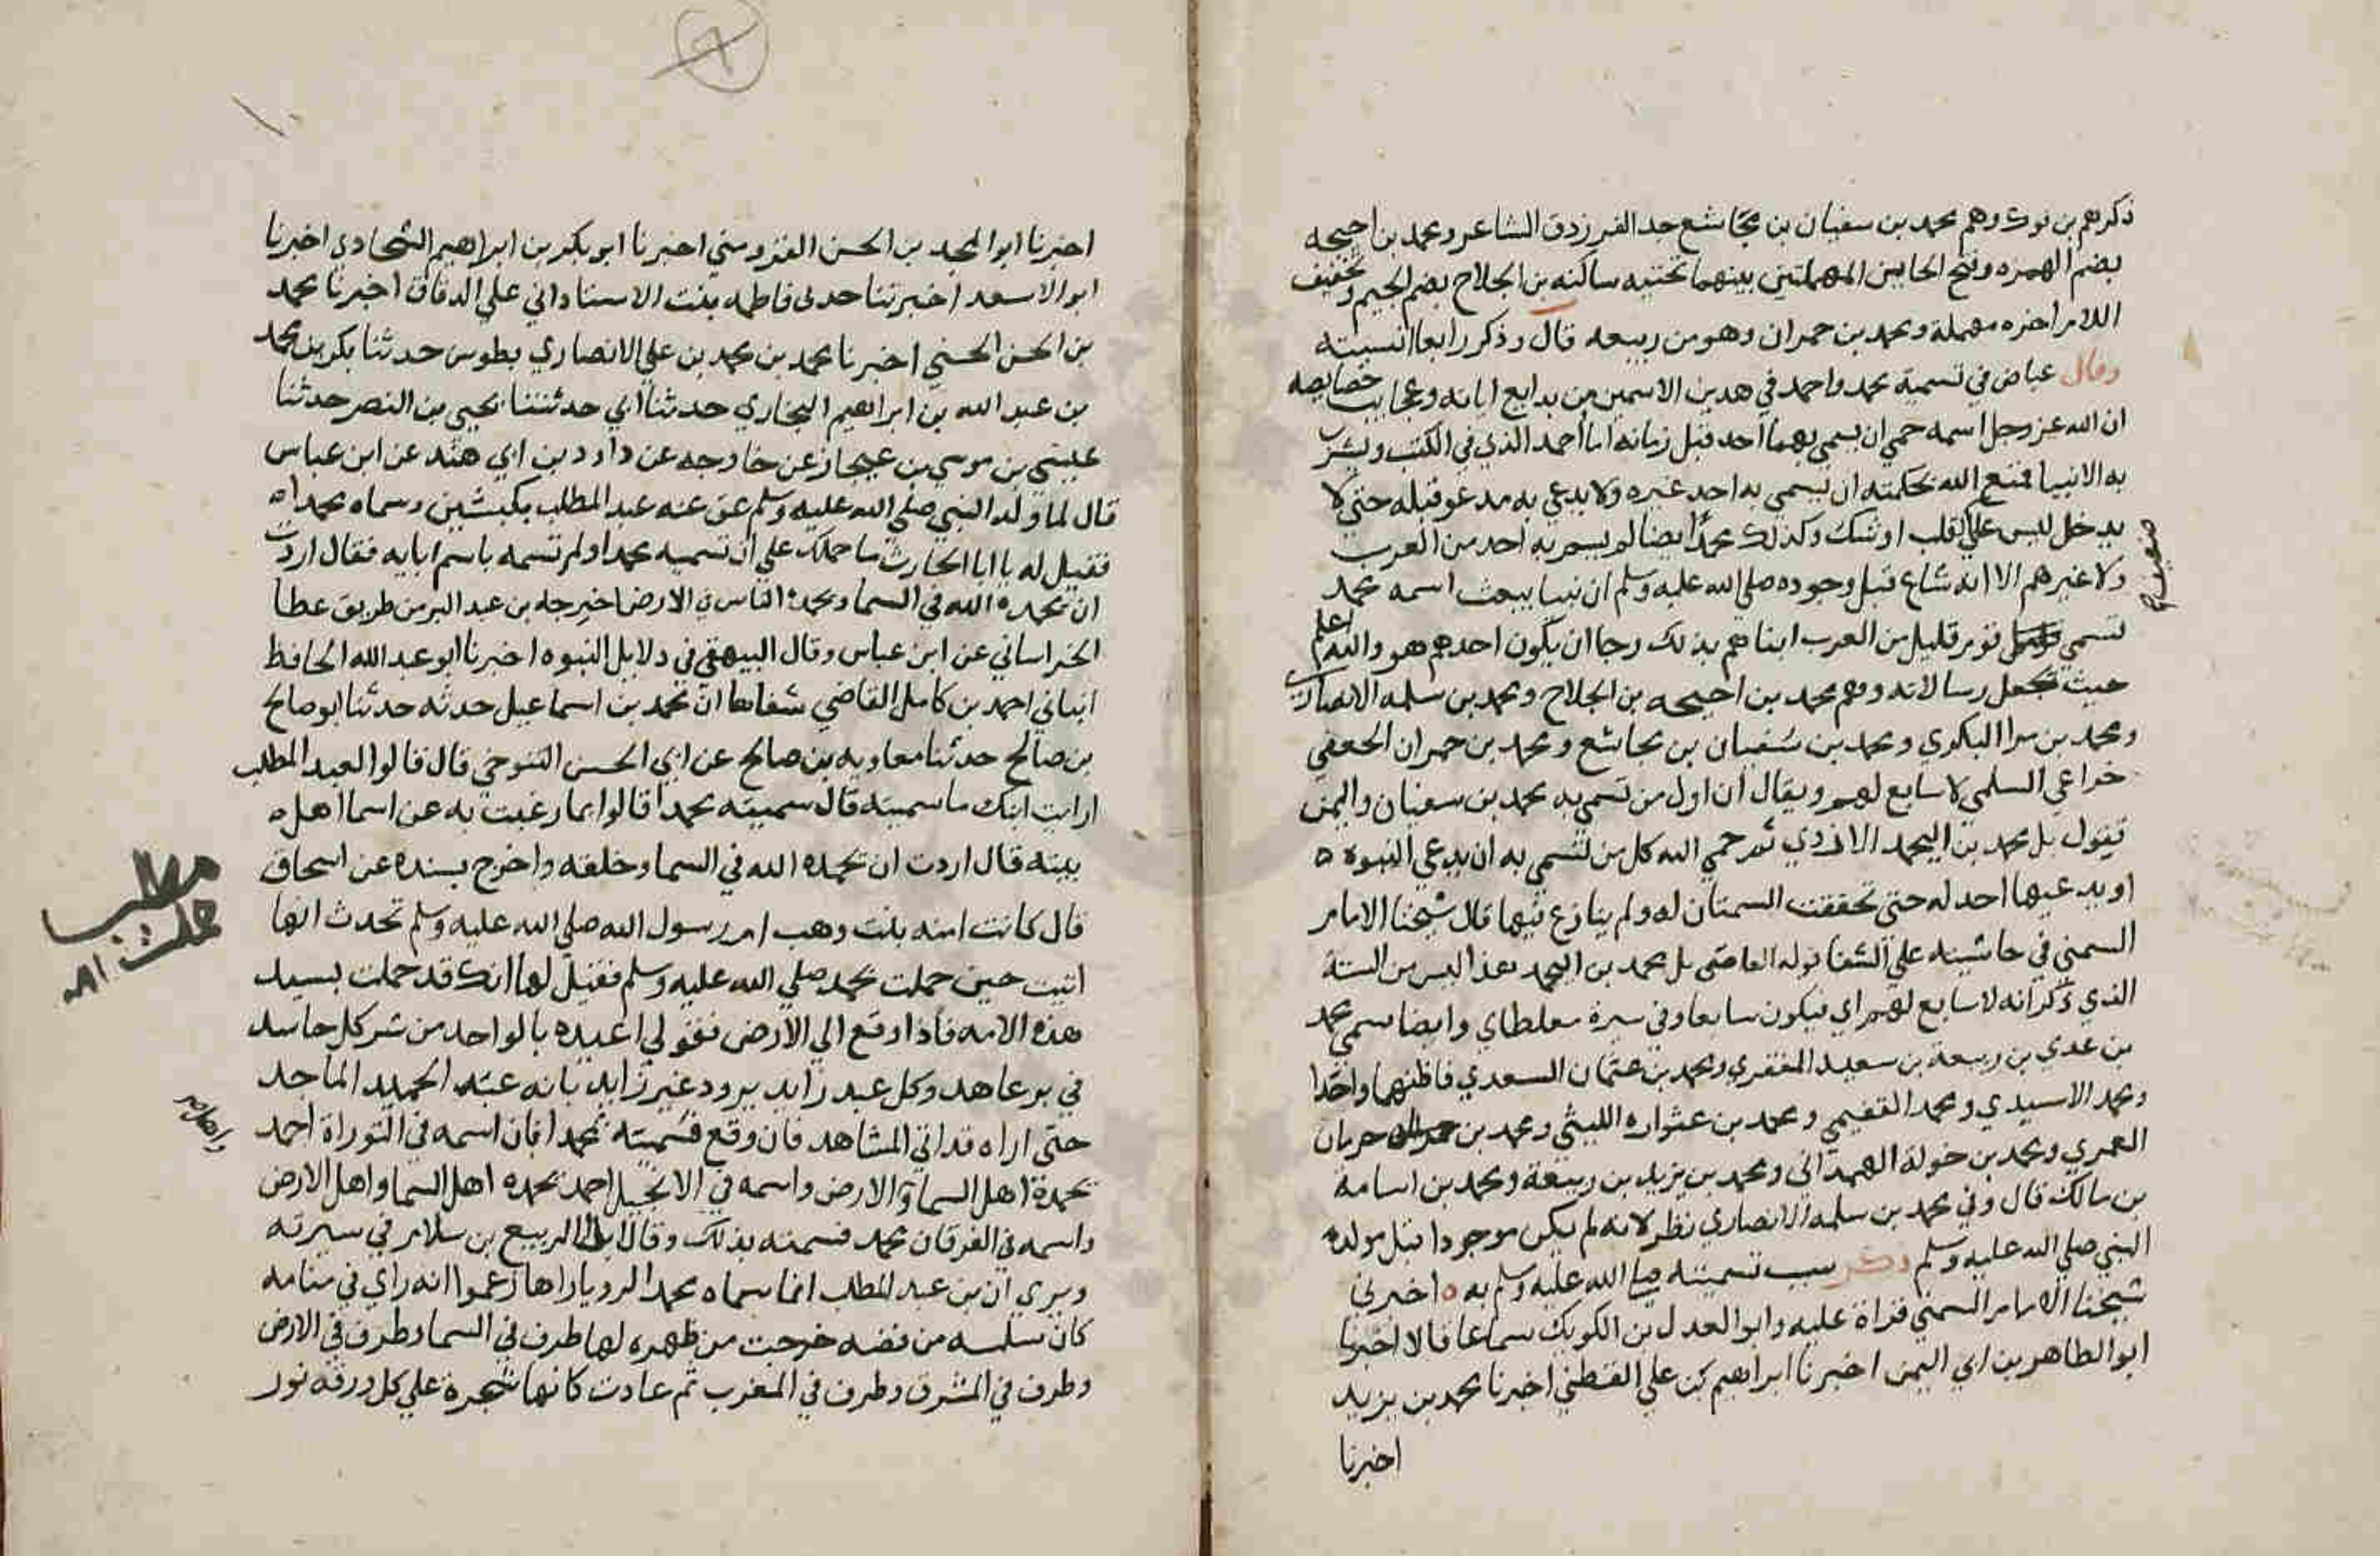 ذكرهم بن فورك وهم محمد بن سفيان بن مجاشع جد الفرزدق الشاعر ومحمد بن احيحه
بضم الهمزه وفتح الحايين المهملتين بينهما تحتيه ساكنه بن الجلاح بضم الجيم وتخفيف
اللام اخره مهملة ومحمد بن حمران وهو من ربيعه قال وذكر رابعا انسيته
وقال عياض في تسمية محمد واحمد في هدين الاسمين من بدايع اياته وعجايب خصايصه
ان الله عز وجل اسمه حمي ان يسمي بهما احد قبل زمانه اما أحمد الذي في الكتب وبشرت
به الانبيا فمنع الله بحكمته ان يسمى به احد غيره ولا يدعي به مدعو قبله حتي لا
يدخل لبس علي القلب او شك وكذلك محمدًا ايضا لم يسم به احد من العرب
ولا غيرهم الا انه شاع قبل وجوده صلى الله عليه وسلم ان نبيا يبعث اسمه محمد
تسمي قوم قليل من العرب ابناهم بذلك رجا ان يكون احدهم هو والله اعلم
حيث تجعل رسالاته وهم محمد بن احيحه بن الجلاح ومحمد بن سلمه الانصاري
ومحمد بن برا البكري ومحمد بن سفيان بن مجاشع ومحمد بن حمران الجعفي
خزاعي السلمي لا سابع لهم ويقال ان اول من تسمى به محمد بن سفيان واليمن
تقول بل محمد بن اليحمد الازدي ثم حمي الله كل من تسمي به ان يدعي النبوه ه
او يدعيها احد له حتى تحققت السمتان له ولم ينازع فيهما قال شيخنا الامام
السمني في حاشيته علي الشفا قوله القاضى بل محمد بن اليحمد هذا ليس من الستة
الذي ذكر انه لا سابع لهم اي فيكون سابعا وفي سيرة مغلطاي وايضا سمي محمد
بن عدي بن ربيعة بن سعيد المنقري ومحمد بن عثمان السعدي فاظنهما واحدا
ومحمد الاسيدي ومحمد الفقيمي ومحمد بن عثواره الليثي ومحمد بن حرمان
العمري ومحمد بن خولة الهمداني ومحمد بن يزيد بن ربيعة ومحمد بن اسامة
بن مالك قال وفي محمد بن سلمه الانصاري نظر لانه لم يكن موجودا قبل مولد
النبي صلي الله عليه وسلم ذكر سبب تسميته صلي الله عليه وسلم به ه اخبرني
شيخنا الامام السمني قراة عليه وابو العدل بن الكويك سماعا قالا اخبرنا
ابو الطاهر بن ابي اليمن اخبرنا ابراهيم بن علي القطبي اخبرنا محمد بن يزيد
اخبرنا
اخبرنا ابو المجد بن الحسن القزويني اخبرنا ابو بكر بن ابراهيم الشحادي اخبرنا
ابو الاسعد اخبرتنا جدتي فاطمه بنت الاستاد ابي علي الدقاق اخبرنا محمد
بن الحسن الحسني اخبرنا محمد بن محمد بن علي الانصاري بطوس حدثنا بكر بن محمد
بن عبد الله بن ابراهيم البخاري حدثنا ابي حدثنا يحيي بن النصر حدثنا
عيسي بن موسي بن عن خارجه عن داود بن ابي هند عن ابن عباس
قال لما ولد النبي صلي الله عليه وسلم عق عنه عبد المطلب بكبشين وسماه محمداه
فقيل له يا ابا الحارث ما حملك علي ان تسميه محمدا ولم تسمه باسم ابايه فقال اردت
ان يحمده الله في السما ويحمده الناس في الارض اخرجه بن عبد البر من طريق عطا
الخراساني عن ابن عباس وقال البيهقي في دلايل النبوه اخبرنا ابو عبد الله الحافظ
انباني احمد بن كامل القاضي شفاها ان محمد بن اسماعيل حدثه حدثنا ابو صالح
بن صالح حدثنا معاويه بن صالح عن ابي الحسن التنوخي قال قالوا لعبد المطلب
ارايت ابنك ما سميته قال سميته محمدا قالوا بما رغبت به عن اسما اهل ه
بيته قال اردت ان يحمده الله في السما وخلقه واخرج بسنده عن اسحاق
قال كانت امنه بنت وهب ام رسول الله صلي الله عليه وسلم تحدث انها
اتيت حين حملت محمد صلي الله عليه وسلم فقيل لها انك قد حملت بسيد
هذه الامه فاذا وقع الي الارض فقولي اعيده بالواحد من شر كل حاسد
في بر عاهد وكل عبد زايد يرود غير زايد بانه عبد الحميد الماجد
حتى اراه قد اتي المشاهد فان وقع فسميته محمدا فان اسمه في التوراة احمد
يحمدة اهل السما والارض واسمه في الانجيل احمد يحمده اهل السما واهل الارض
واسمه في الفرقان محمد فسمته بذلك وقال ابو الربيع بن سلام في سيرته
ويري ان بن عبد المطلب انما سماه محمدا لرويا راها زعموا انه راي في منامه
كان سلسه من فضه خرجت من ظهره لها طرف في السما وطرف في الارض
وطرف في المشرق وطرف في المغرب ثم عادت كانها شجرة علي كل ورقة نور
مطلب
حملت امه